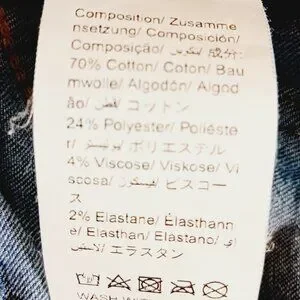 Composition/ Zusamme
nsetzung/ Composición/
Composição/ 成分:
70% Cotton/ Coton/ Bau
mwolle/ Algodón/ Algod
ão/ قطن/ コットン
24% Polyester/ Poliéste
r/ بوليستر/ ポリエステル
4% Viscose/ Viskose/ Vi
scosa/ فيسكوز/ ビスコー
ス
2% Elastane/ Élasthann
e/ Elasthan/ Elastano/
エラスタン
WASH WITH